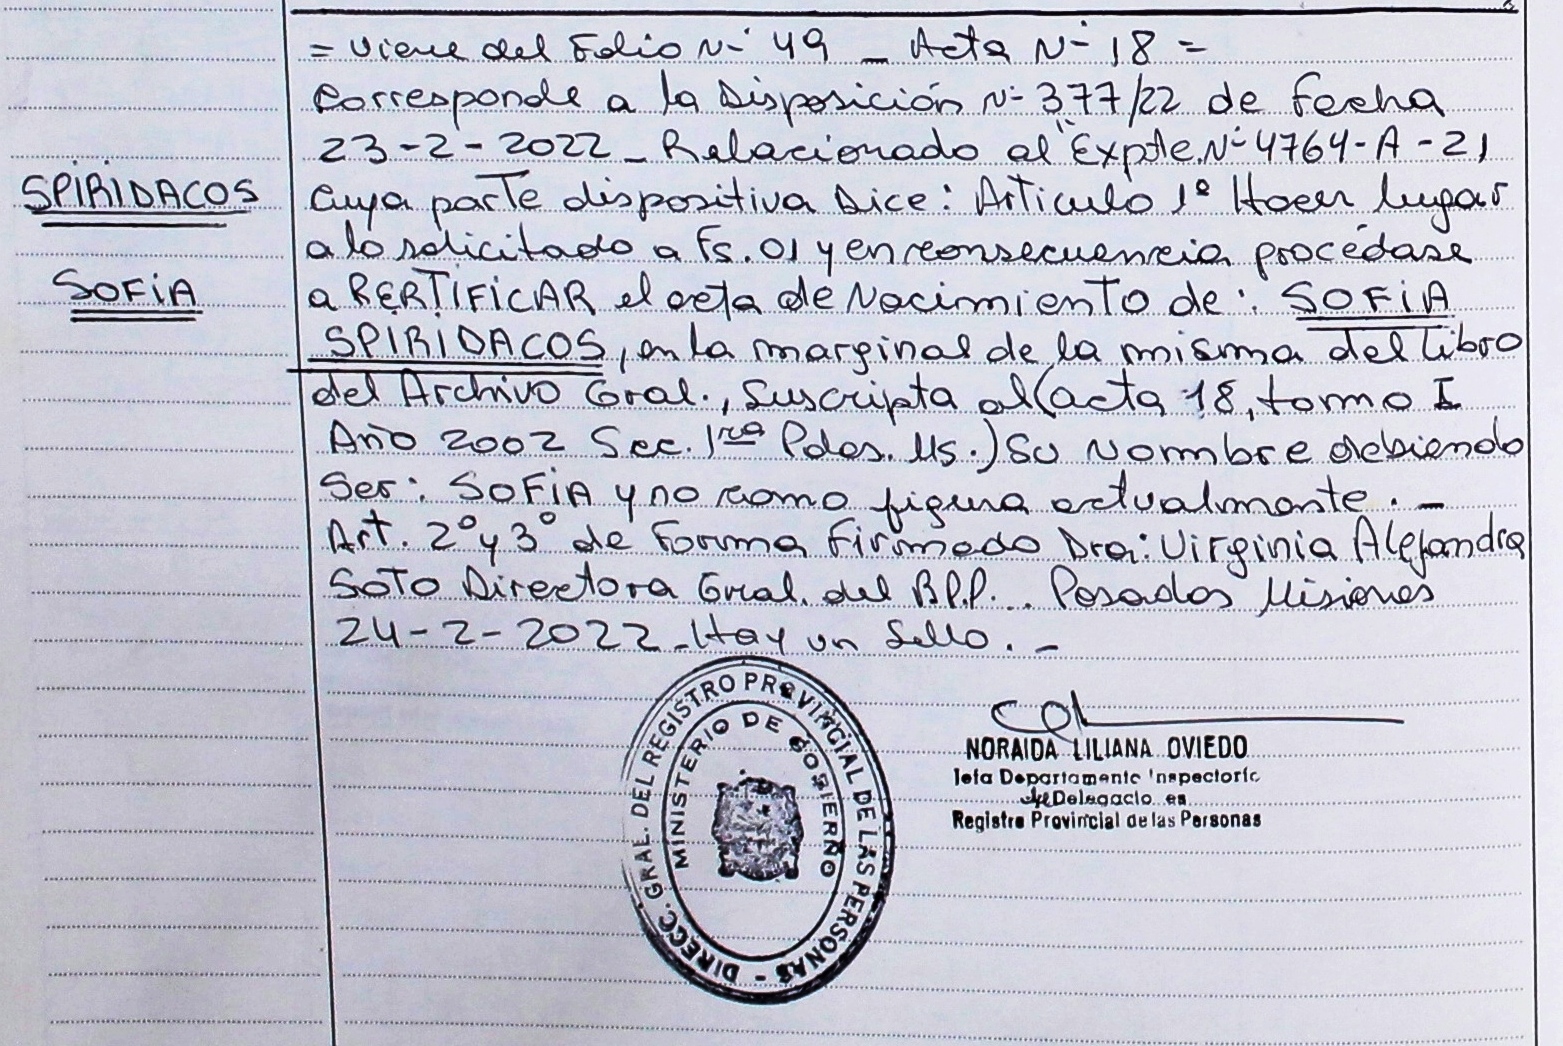 = Viene del Folio N- 49 _ Acta N- 18 =
Corresponde a la Disposición N- 377/22 de fecha
23-2-2022_Relacionado al "Expte.N- 4764-A-21
SPIRIDACOS
cuya parte dispositiva Dice: Articulo 1º Hacer lugar
a lo solicitado a Fs.01 y en consecuencia procédase
SOFIA
a RERTIFICAR el acta de Nacimiento de: SOFIA
SPIRIDACOS, en la marginal de la misma del Libro
del Archivo Gral., Suscripta al (acta 18, tomo I
Año 2002 Sec. 1ra Pdas. Ms.) Su Nombre debiendo
Ser: SOFIA y no como figura actualmente. -
Art. 2º y 3º de Forma Firmado Dra: Virginia Alejandra
Soto Directora Gral. del R.P.P... Posadas Misiones
24-2-2022_Hay un Sello. -
DIRECC. GRAL. DEL REGISTRO PROVINCIAL DE LAS PERSONAS -
MINISTERIO DE GOBIERNO
NORAIDA LILIANA OVIEDO
Jefa Departamento Inspectoria
de Delegacio es
Registro Provincial de las Personas